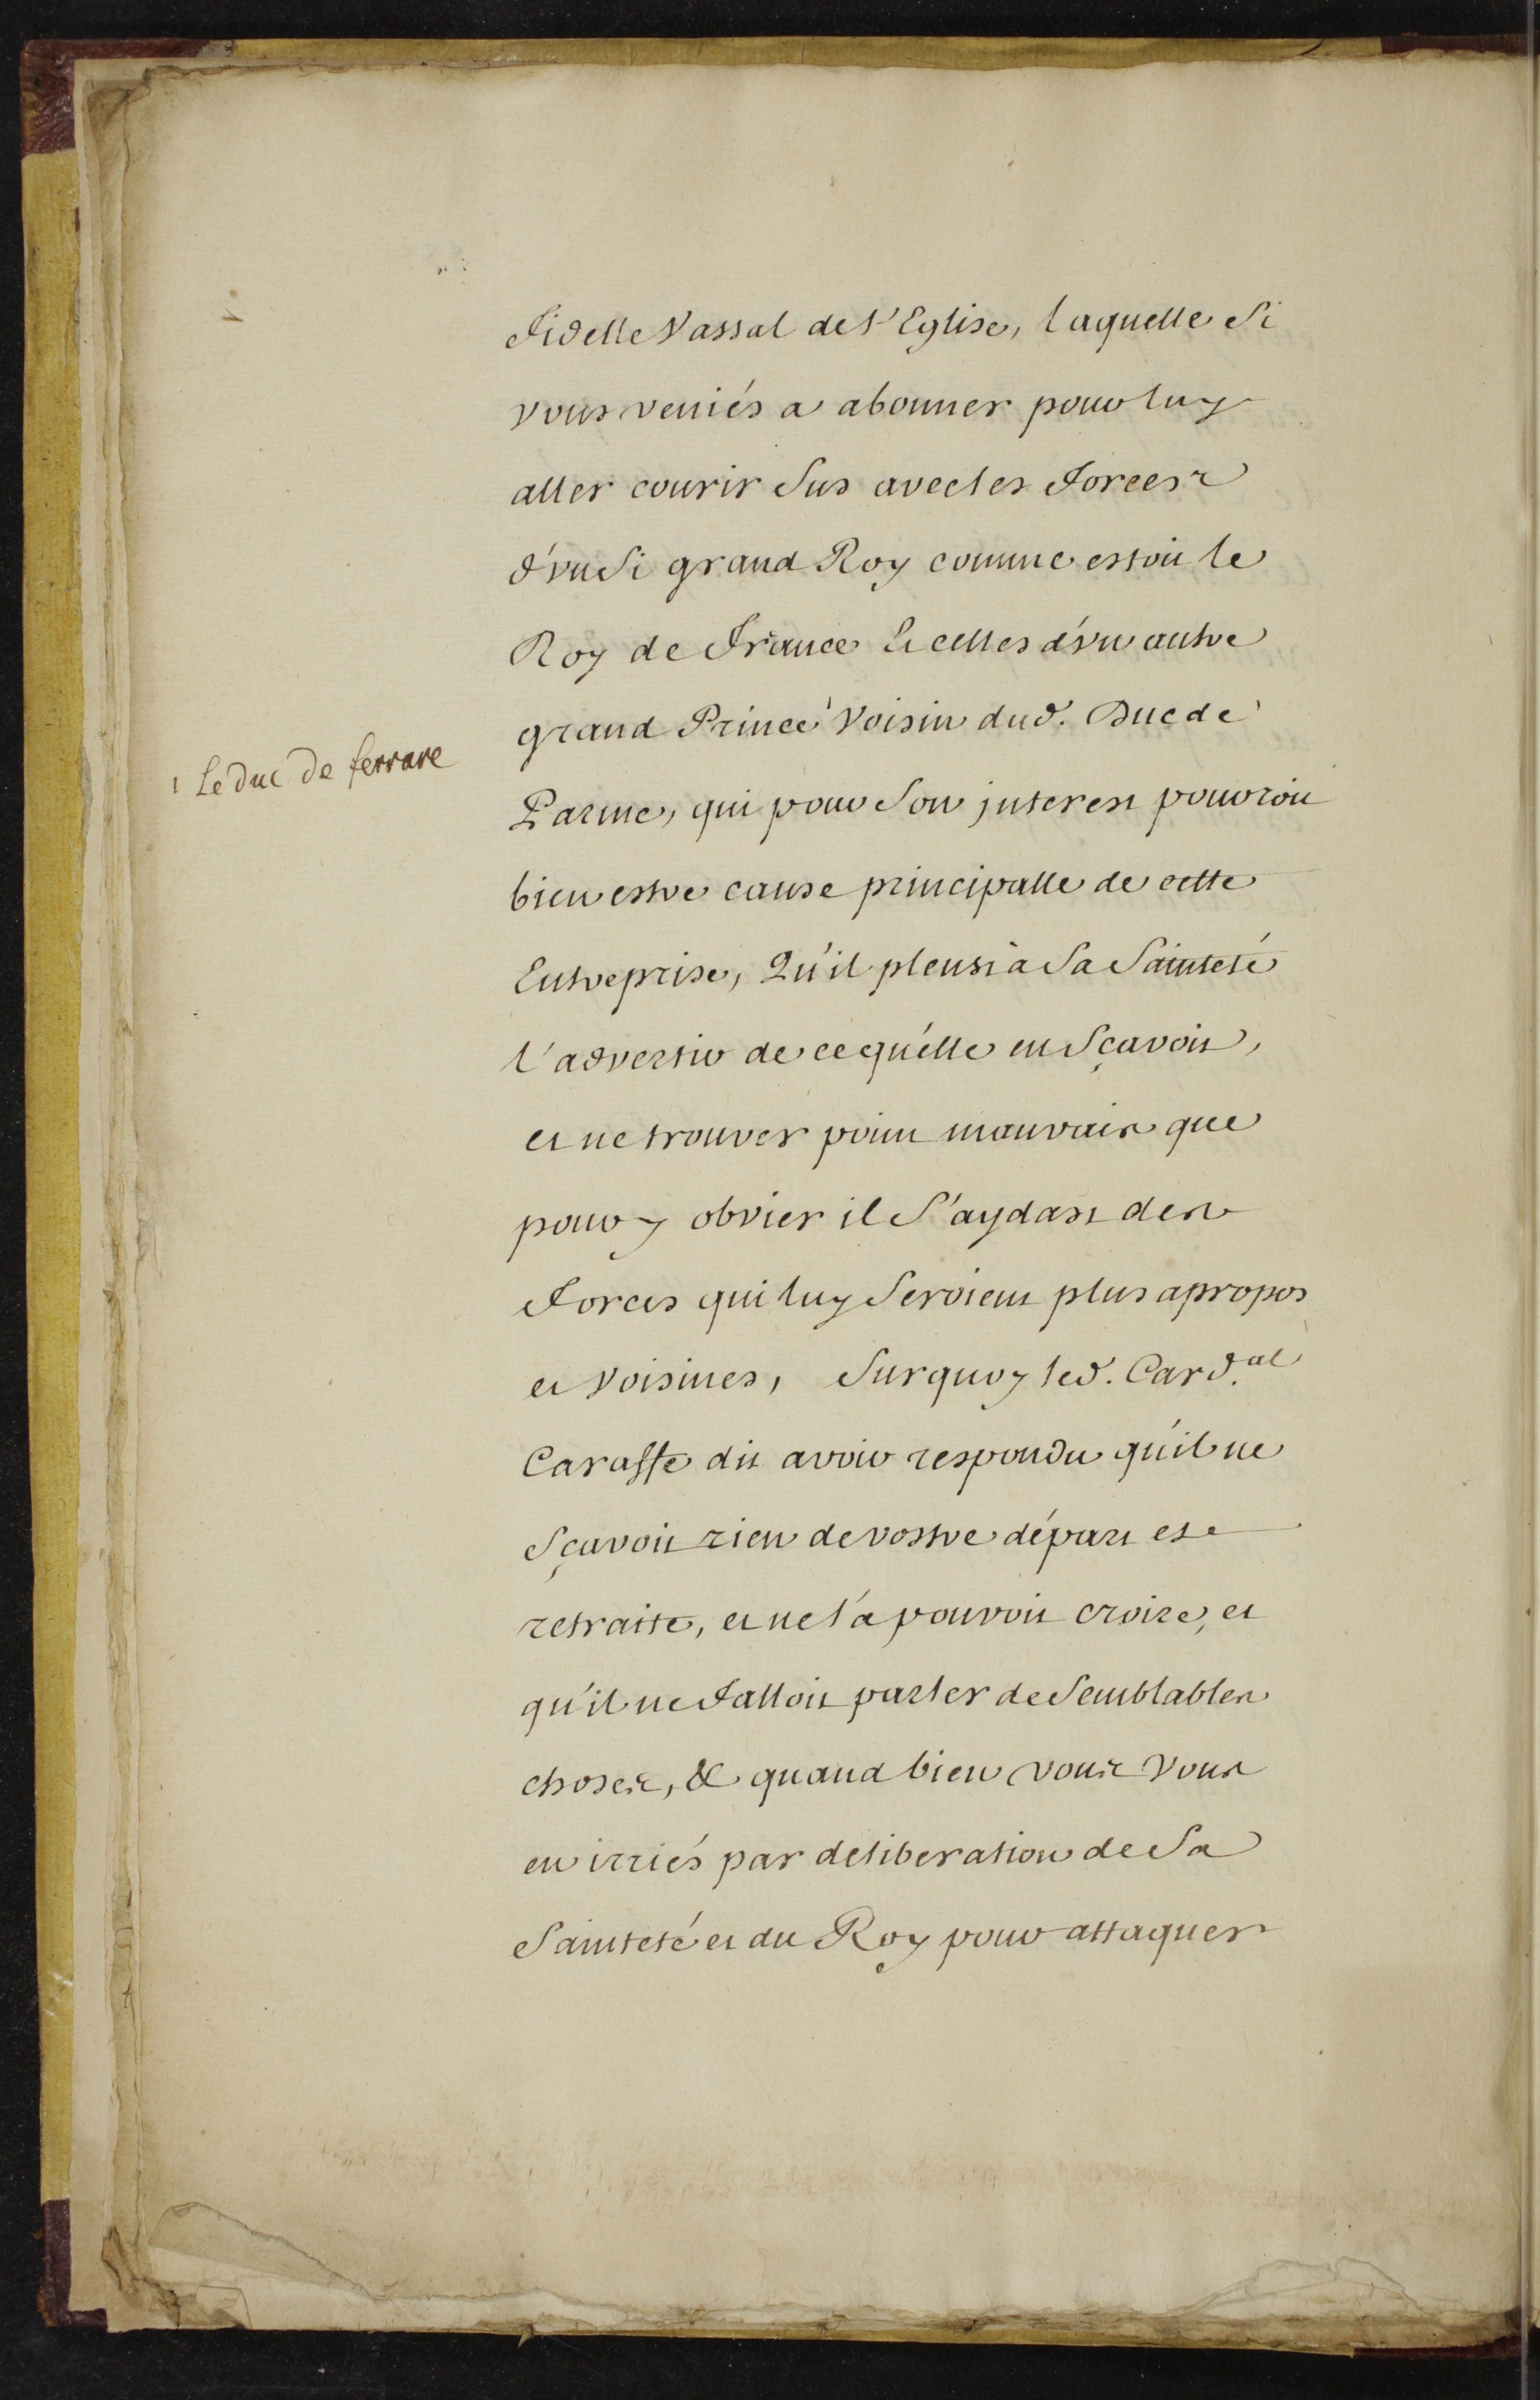 fidelle Vassal de l'Eglise, laquelle si
vous veniés a abonner pour luy
aller courir sus avec les forces
d'vn si grand Roy comme estoit le
Roy de france Et celles d'vn autre
grand Prince Voisin dud. Duc de
1 Le duc de ferrare
Parme, qui pour son jnterest pouvroit
bien estre cause principalle de cette
Entreprise, Qu'il pleust à sa Sainteté
l'advertir de ce qu'elle en sçavoit,
et ne trouver point mauvais que
pour y obvier il s'aydast des
forces qui luy seroient plus apropos
et Voisines, surquoy led. Card.al
Caraffe dit avoir respondu qu'il ne
sçavoit rien de vostre départ et
retraite, et ne la pouvoit croire, et
qu'il ne falloit parler de semblables
choses, & quand bien vous vous
en irriés par deliberation de sa
Sainteté et du Roy pour attaquer